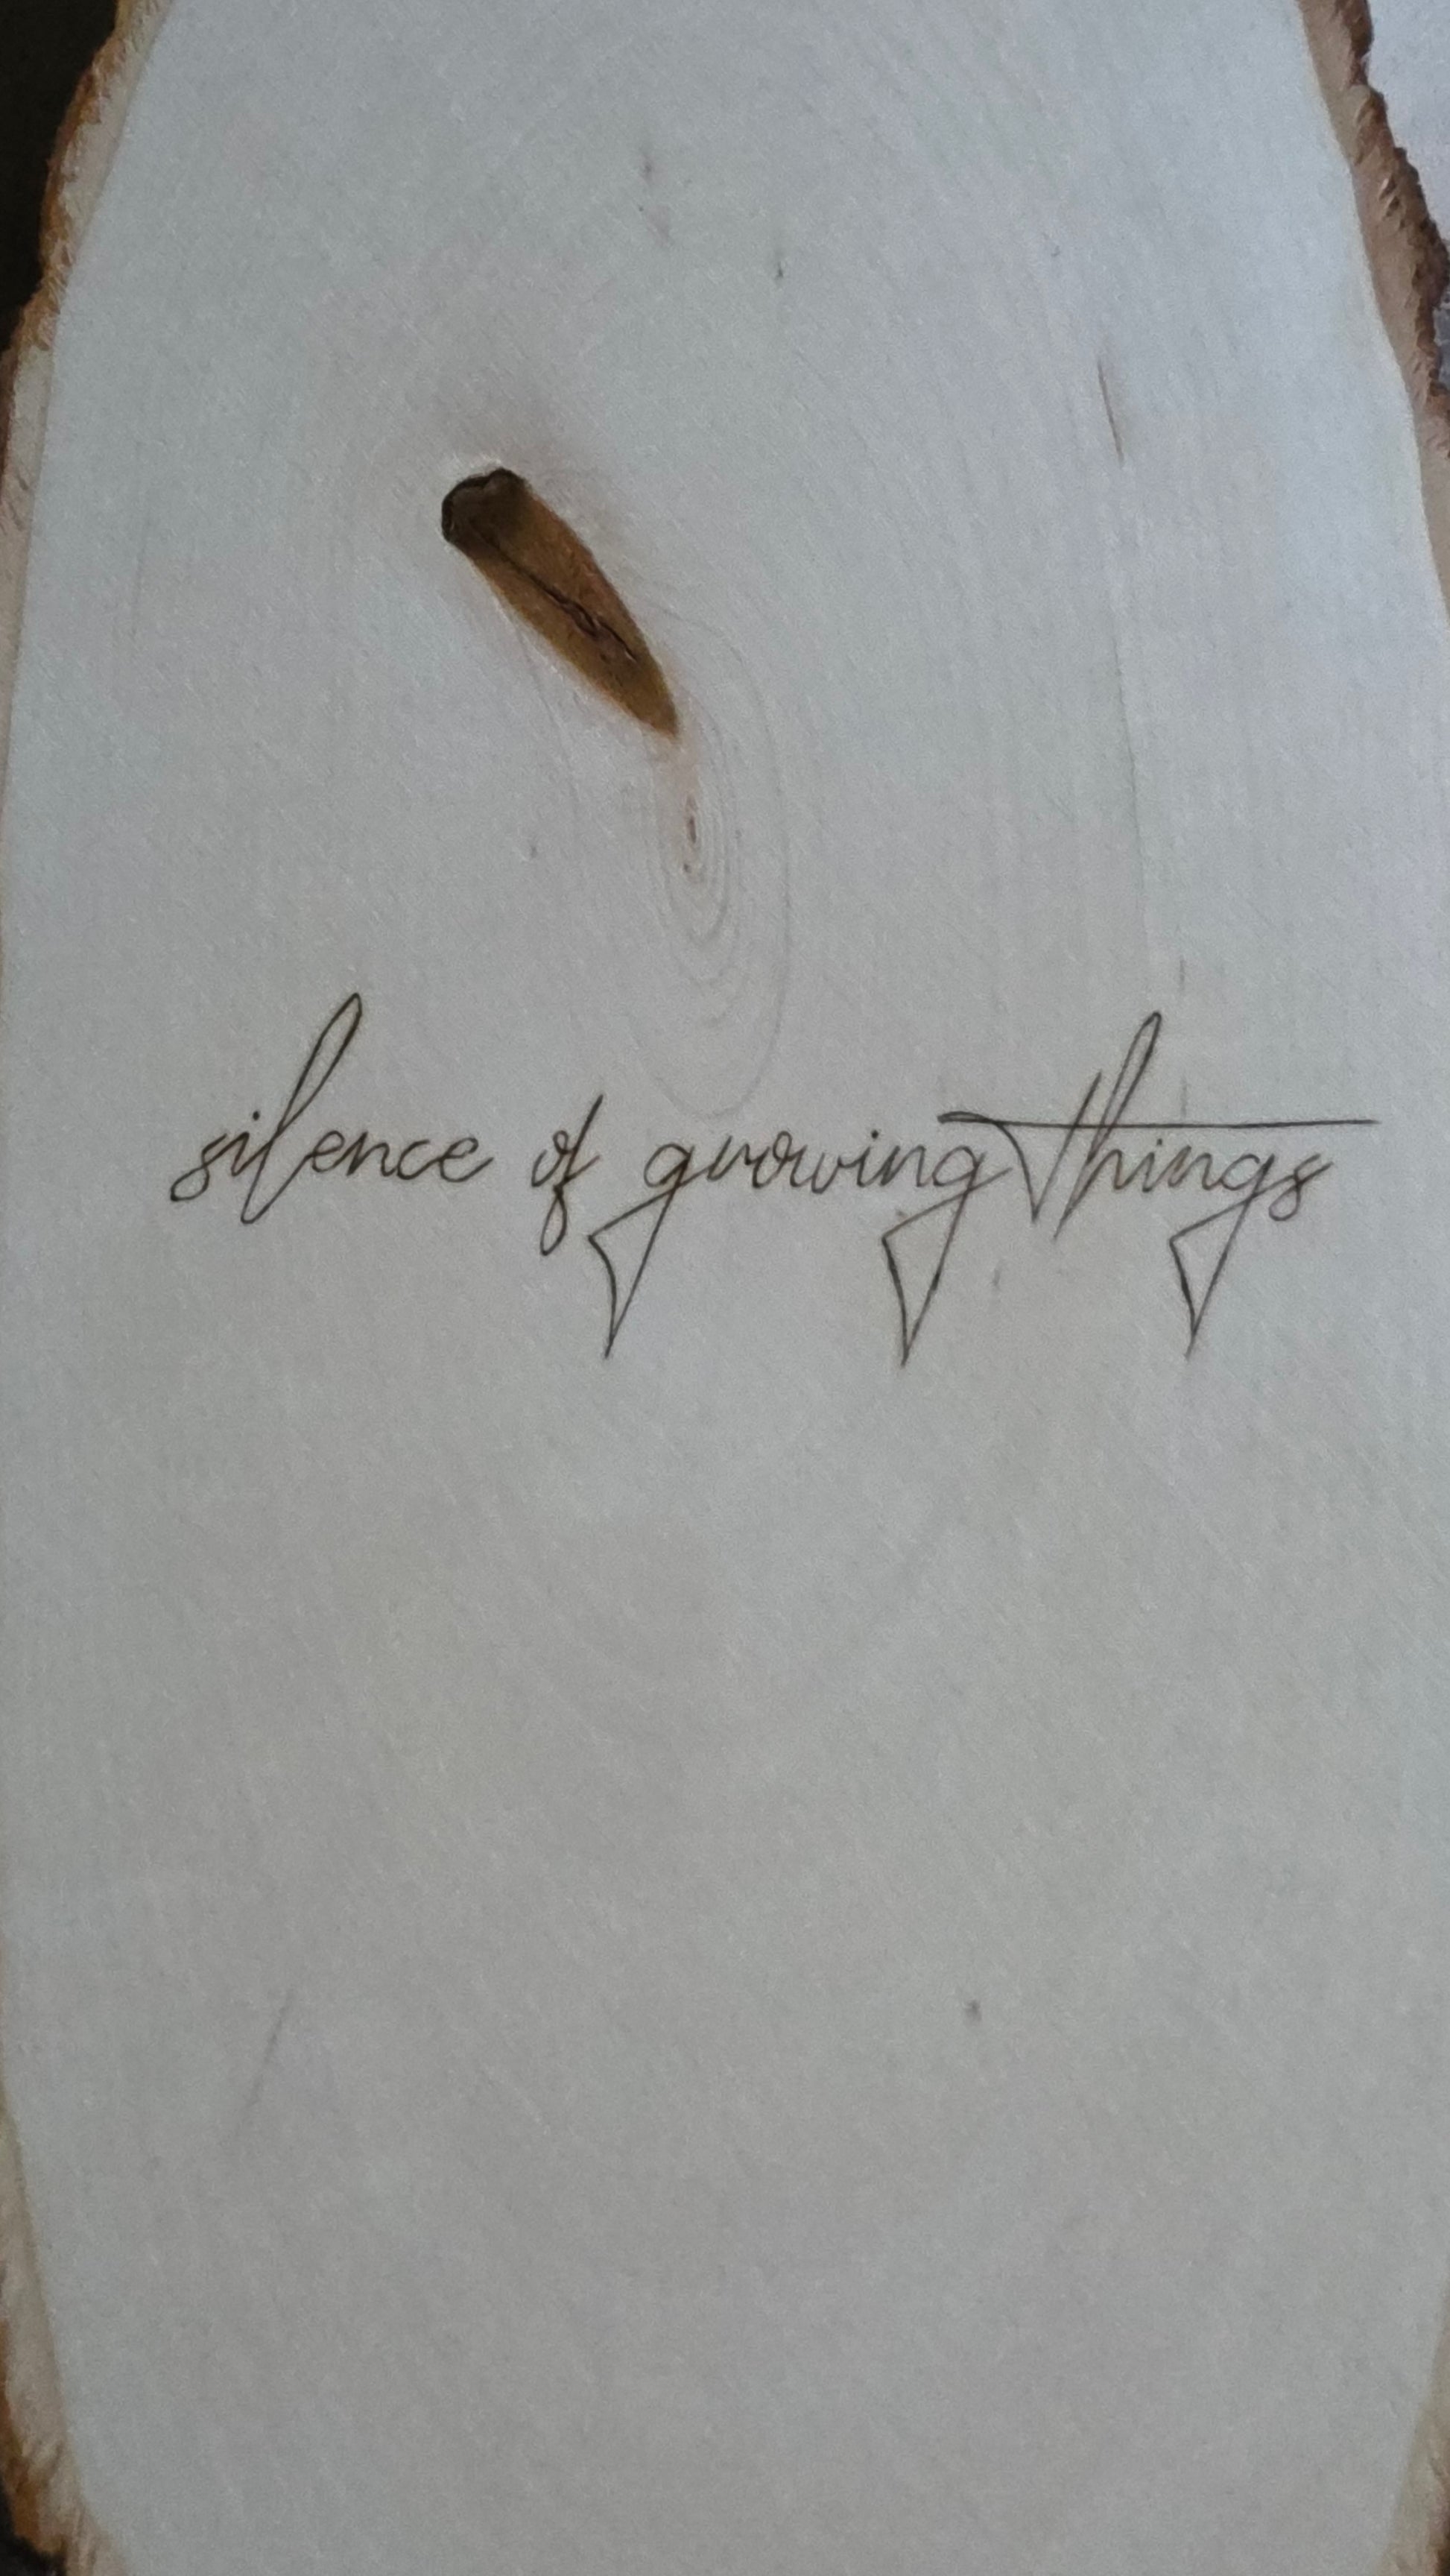 silence of growing things